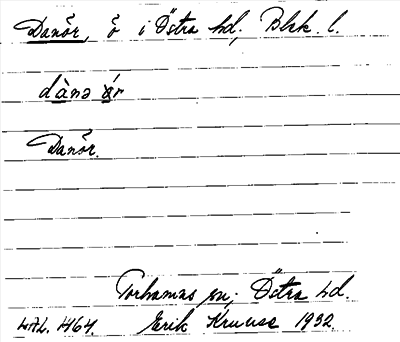 Danör, ö i Östra hd, Blek. l.
dànə ǿr
Danör.
Torhamns sn; Östra hd.
LAL. 1464. Erik Kruuse 1932